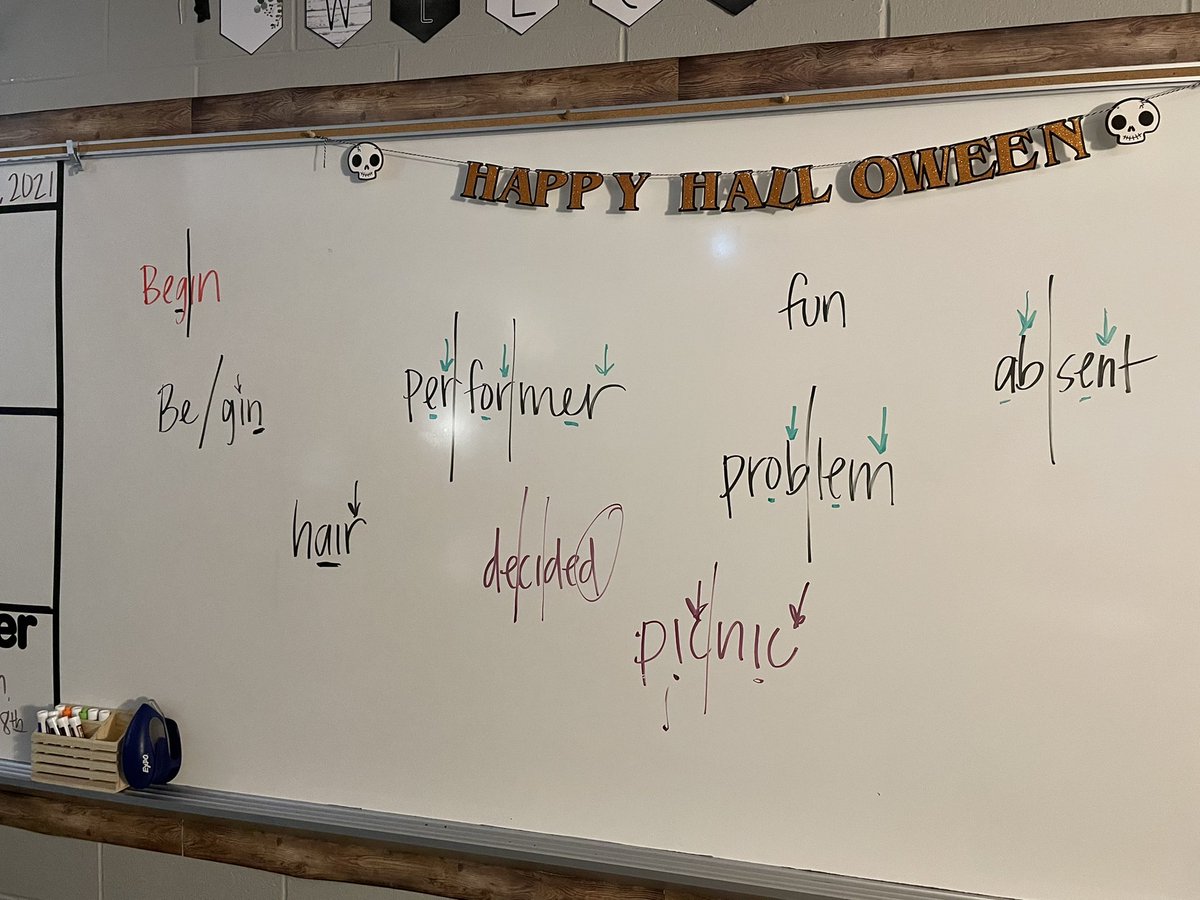 W L L
2021
HAPPY HALLOWEEN
Beg|in
Be/gin
per|for|mer
fun
ab|sent
hair
de|ci|ded
prob|lem
pic|nic
er
8th
EXPO